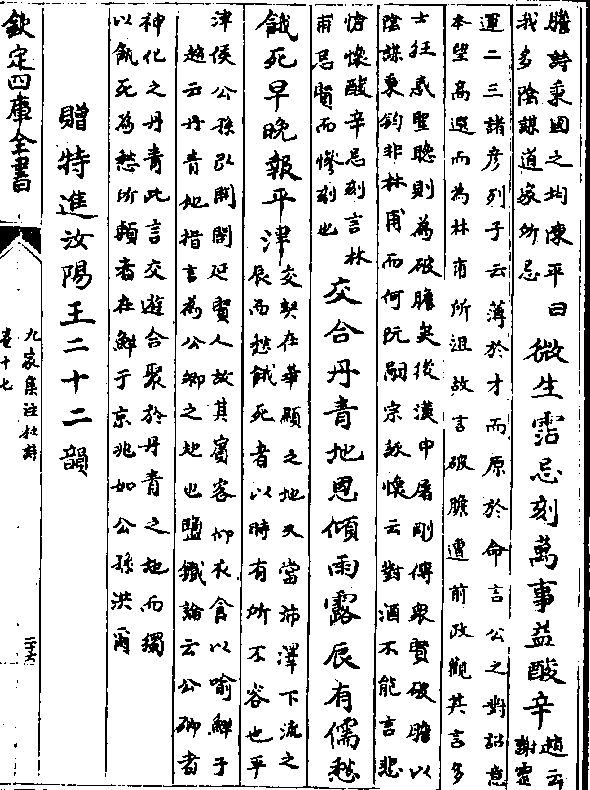 膽詩秉國之均陳平曰
我多陰謀道家所忌
微生霑忌刻萬事益酸辛
趙云
謝靈
運二三諸彥列子云薄於才而原於命言公之對詔意
本望高選而為林甫所沮故言破膽遭前政觀其言多
士狂惑聖聰則為破膽矣後漢申屠剛傳衆賢破膽以
陰謀秉鈞非林甫而何阮嗣宗詠懷云對酒不能言悲
愴懷酸辛忌刻言林
甫忌賢而慘刻也
交合丹青地恩傾雨露辰有儒愁
餓死早晚報平津
交契在華顯之地又當沛澤下流之
辰而愁餓死者以時有所不容也平
津侯公孫弘開閣延賢人故其賓客仰衣食以喻鮮于
趙云丹青地指言為公卿之地也鹽鐵論云公卿者
神化之丹青此言交遊合聚於丹青之地而獨
以餓死為愁所頼者在鮮于京兆如公孫洪爾
贈特進汝陽王二十二韻
欽定四庫全書
九家集注杜詩
卷十七
二十六